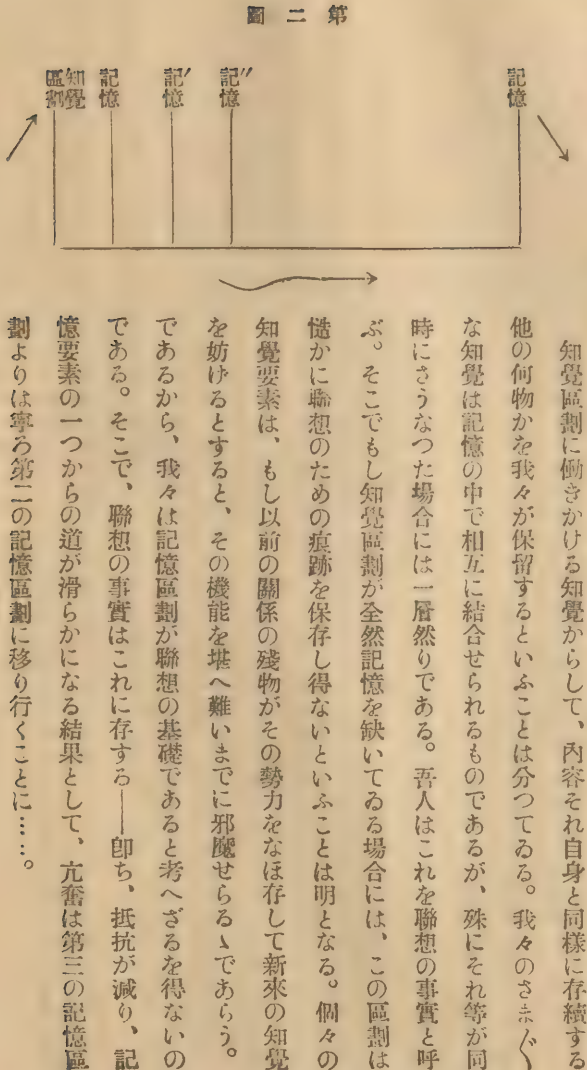 第二圖
記憶
記″憶
記′憶
記憶
知覺
區劃
知覺區劃に働きかける知覺からして、內容それ自身と同樣に存續する
他の何物かを我々が保留するといふことは分つてゐる。我々のさま〴〵
な知覺は記憶の中で相互に結合せられるものであるが、殊にそれ等が同
時にさうなつた場合には一層然りである。吾人はこれを聯想の事實と呼
ぶ。そこでもし知覺區劃が全然記憶を缺いてゐる場合には、この區劃は
慥かに聯想のための痕跡を保存し得ないといふことは明となる。個々の
知覺要素は、もし以前の關係の殘物がその勢力をなほ存して新來の知覺
を妨げるとすると、その機能を堪へ難いまでに邪魔せらるゝであらう。
であるから、我々は記憶區劃が聯想の基礎であると考へざるを得ないの
である。そこで、聯想の事實はこれに存する——卽ち、抵抗が減り、記
憶要素の一つからの道が滑らかになる結果として、亢奮は第三の記憶區
劃よりは寧ろ第二の記憶區劃に移り行くことに……。